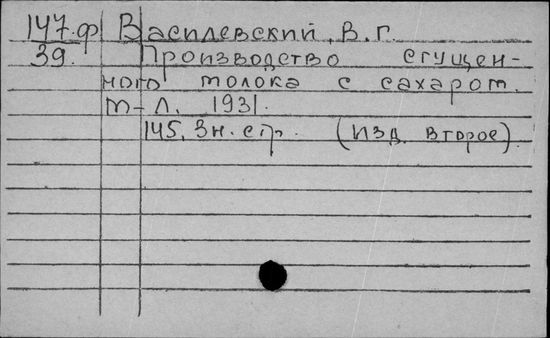 147.ф Василевский, В.Г.
39. Производство сгущен-
ного молока с сахаром.
М-Л. 1931.
145, 3 н. стр. (Изд. второе).